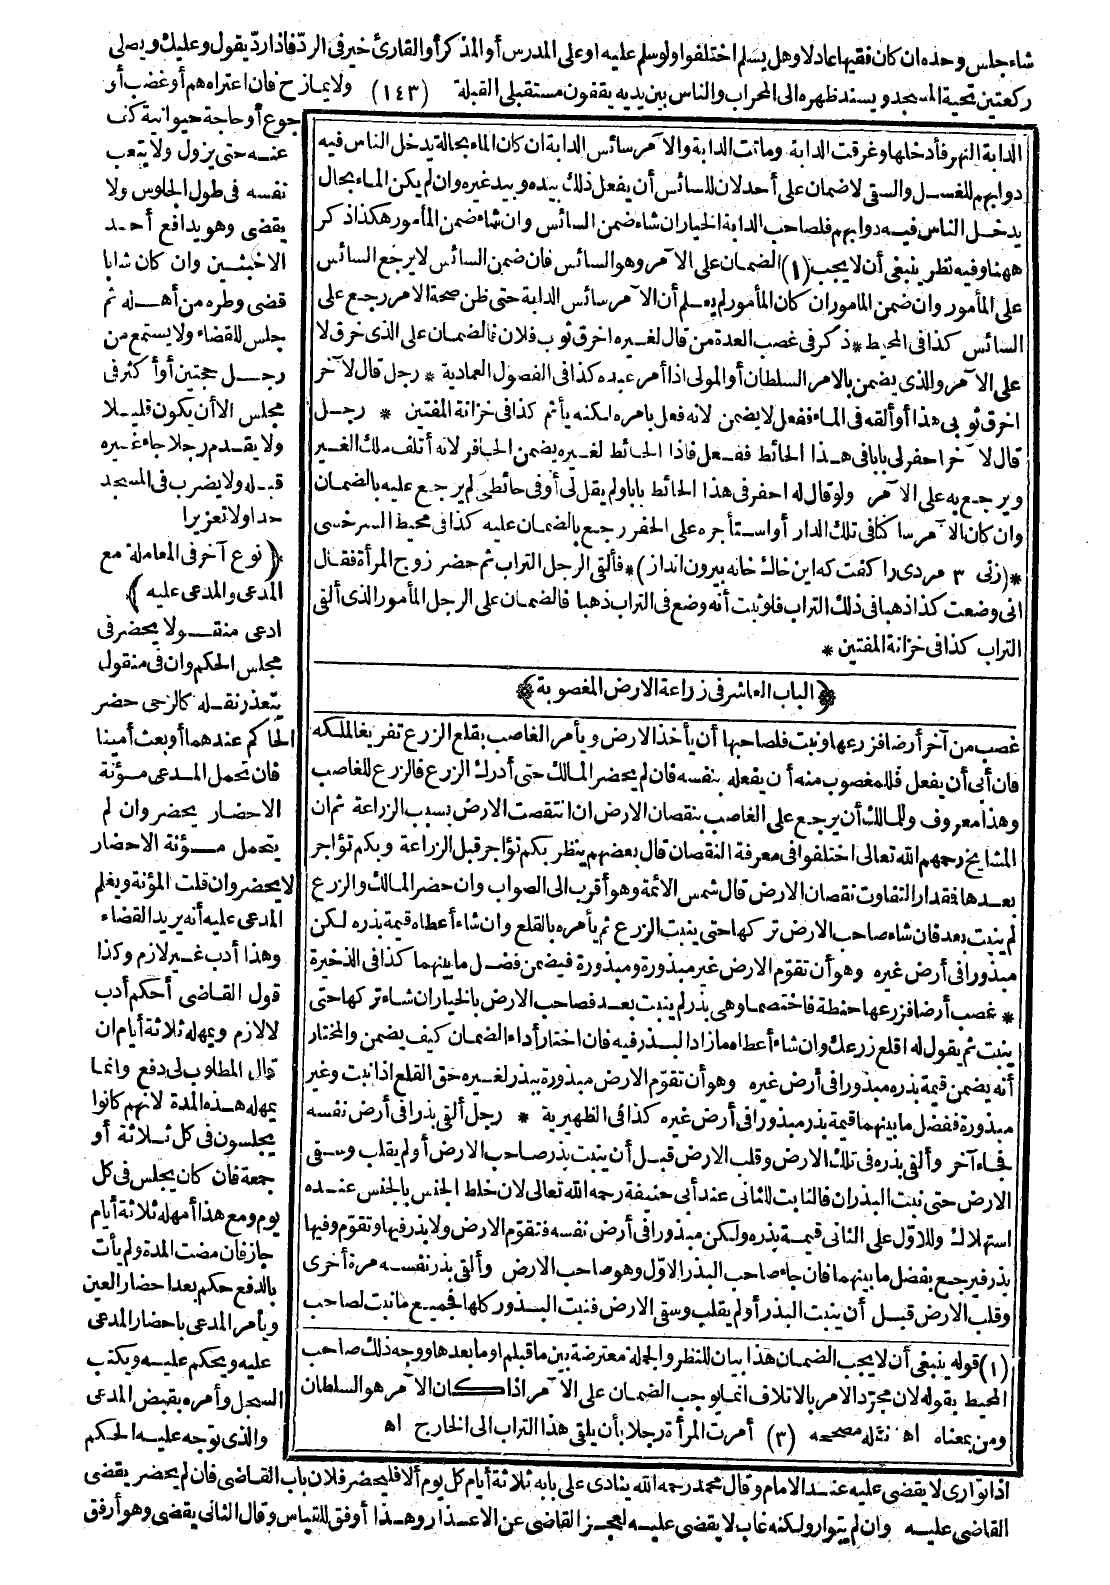 شاء جلس وحده ان كان فقيها عادلا وهل يسلم اختلفوا ولو سلم عليه او على المدرس أو المذكر أو القارئ خير فى الرد فاذا رد يقول وعليك ويصلى
ركعتين تحية المسجد ويسند ظهره الى المحراب والناس بين يديه يقفون مستقبلى القبلة (١٤٣) ولا يمازح فان اعتراه هم أو غضب أو
جوع أو حاجة حيوانية كف
عنه حتى يزول ولا يتعب
نفسه فى طول الجلوس ولا
يقضى وهو يدافع أحد
الاخبثين وان كان شابا
قضى وطره من أهله ثم
جلس للقضاء ولا يستمع من
رجل حجتين أو أكثر فى
مجلس الا أن يكون قليلا
ولا يقدم رجلا جاء غيره
قبله ولا يضرب فى المسجد
حدا ولا تعزيرا
﴿نوع آخر فى المعاملة مع
المدعى والمدعى عليه﴾
ادعى منقولا يحضر فى
مجلس الحكم وان فى منقول
يتعذر نقله كالرحى حضر
الحاكم عندهما أو بعث أمينا
فان تحمل المدعى مؤنة
الاحضار يحضر وان لم
يتحمل مؤنة الاحضار
لا يحضر وان قلت المؤنة ويعلم
المدعى عليه أنه يريد القضاء
وهذا أدب غير لازم وكذا
قول القاضى أحكم أدب
لا لازم ويمهله ثلاثة أيام ان
قال المطلوب لى دفع وانما
يمهله هذه المدة لانهم كانوا
يجلسون فى كل ثلاثة أو
جمعة فان كان يجلس فى كل
يوم ومع هذا أمهله ثلاثة أيام
جاز فان مضت المدة ولم يأت
بالدفع حكم بعد احضار العين
ويأمر المدعى باحضار المدعى
عليه ويحكم عليه ويكتب
السجل وأمره بقبض المدعى
والذى توجه عليه الحكم
الدابة النهر فأدخلها وغرقت الدابة وماتت الدابة والآمر سائس الدابة ان كان الماء بحالة يدخل الناس فيه
دوابهم للغسل والسقى لا ضمان على أحد لان للسائس أن يفعل ذلك بيده وبيد غيره وان لم يكن الماء بحال
يدخل الناس فيه دوابهم فلصاحب الدابة الخيار ان شاء ضمن السائس وان شاء ضمن المأمور هكذا ذكر
ههنا وفيه نظر ينبغى أن لا يجب (١) الضمان على الآمر وهو السائس فان ضمن السائس لا يرجع السائس
على المأمور وان ضمن المامور ان كان المأمور لم يعلم أن الآمر سائس الدابة حتى ظن صحة الامر رجع على
السائس كذا فى المحيط * ذكر فى غصب العدة من قال لغيره اخرق ثوب فلان فالضمان على الذى خرق لا
على الآمر والذى يضمن بالامر السلطان أو المولى اذا أمر عبده كذا فى الفصول العمادية * رجل قال لآخر
اخرق ثوبى هذا أو ألقه فى الماء ففعل لا يضمن لانه فعل بامره لكنه يأثم كذا فى خزانة المفتين * رجل
قال لآخر احفر لى بابا فى هذا الحائط ففعل فاذا الحائط لغيره يضمن الحافر لانه أتلف ملك الغير
ويرجع به على الآمر ولو قال له احفر فى هذا الحائط بابا ولم يقل لى أو فى حائطى لم يرجع عليه بالضمان
وان كان الآمر ساكنا فى تلك الدار أو استأجره على الحفر رجع بالضمان عليه كذا فى محيط السرخسى
*(زنى ٣ مردى را كفت كه اين خاك خانه بيرون انداز)* فألقى الرجل التراب ثم حضر زوج المرأة فقال
انى وضعت كذا ذهبا فى ذلك التراب فلو ثبت أنه وضع فى التراب ذهبا فالضمان على الرجل المأمور الذى ألقى
التراب كذا فى خزانة المفتين *
﴿الباب العاشر فى زراعة الارض المغصوبة﴾
غصب من آخر أرضا فزرعها ونبت فلصاحبها أن يأخذ الارض ويأمر الغاصب بقلع الزرع تفريغا لملكه
فان أبى أن يفعل فللمغصوب منه أن يفعله بنفسه فان لم يحضر المالك حتى أدرك الزرع فالزرع للغاصب
وهذا معروف وللمالك أن يرجع على الغاصب بنقصان الارض ان انتقصت الارض بسبب الزراعة ثم ان
المشايخ رحمهم الله تعالى اختلفوا فى معرفة النقصان قال بعضهم ينظر بكم تؤاجر قبل الزراعة وبكم تؤاجر
بعدها فمقدار التفاوت نقصان الارض قال شمس الائمة وهو أقرب الى الصواب وان حضر المالك والزرع
لم ينبت بعد فان شاء صاحب الارض تركها حتى ينبت الزرع ثم يأمره بالقلع وان شاء أعطاه قيمة بذره لكن
مبذورا فى أرض غيره وهو أن تقوم الارض غير مبذورة ومبذورة فيضمن فضل ما بينهما كذا فى الذخيرة
* غصب أرضا فزرعها حنطة فاختصما وهى بذر لم ينبت بعد فصاحب الارض بالخيار ان شاء تركها حتى
ينبت ثم يقول له اقلع زرعك وان شاء أعطاه ما زاد البذر فيه فان اختار أداء الضمان كيف يضمن والمختار
أنه يضمن قيمة بذره مبذورا فى أرض غيره وهو أن تقوم الارض مبذورة ببذر لغيره حق القلع اذا نبت وغير
مبذورة ففضل ما بينهما قيمة بذر مبذورا فى أرض غيره كذا فى الظهيرية * رجل ألقى بذرا فى أرض نفسه
فجاء آخر وألقى بذره فى تلك الارض وقلب الارض قبل أن ينبت بذر صاحب الارض أو لم يقلب وسقى
الارض حتى نبت البذران فالنابت للثانى عند أبى حنيفة رحمه الله تعالى لان خلط الجنس بالجنس عنده
استهلاك وللاول على الثانى قيمة بذره ولكن مبذورا فى أرض نفسه فتقوم الارض ولا بذر فيها وتقوم وفيها
بذر فيرجع بفضل ما بينهما فان جاء صاحب البذر الاول وهو صاحب الارض وألقى بذر نفسه مرة أخرى
وقلب الارض قبل أن ينبت البذر أو لم يقلب وسقى الارض فنبت البذور كلها فجميع ما نبت لصاحب
(١) قوله ينبغى أن لا يجب الضمان هذا بيان للنظر والجملة معترضة بين ما قبلها وما بعدها ووجه ذلك صاحب
المحيط بقوله لان مجرد الامر بالاتلاف انما يوجب الضمان على الآمر اذا كان الآمر هو السلطان
ومن بمعناه اه نقله مصححه (٣) أمرت المرأة رجلا بأن يلقى هذا التراب الى الخارج اه
اذا توارى لا يقضى عليه عند الامام وقال محمد رحمه الله ينادى على بابه ثلاثة أيام كل يوم ألا فليحضر فلان باب القاضى فان لم يحضر يقضى
القاضى عليه وان لم يتوار ولكنه غاب لا يقضى عليه لعجز القاضى عن الاعذار وهذا أوفق للقياس وقال الثانى يقضى وهو أرفق